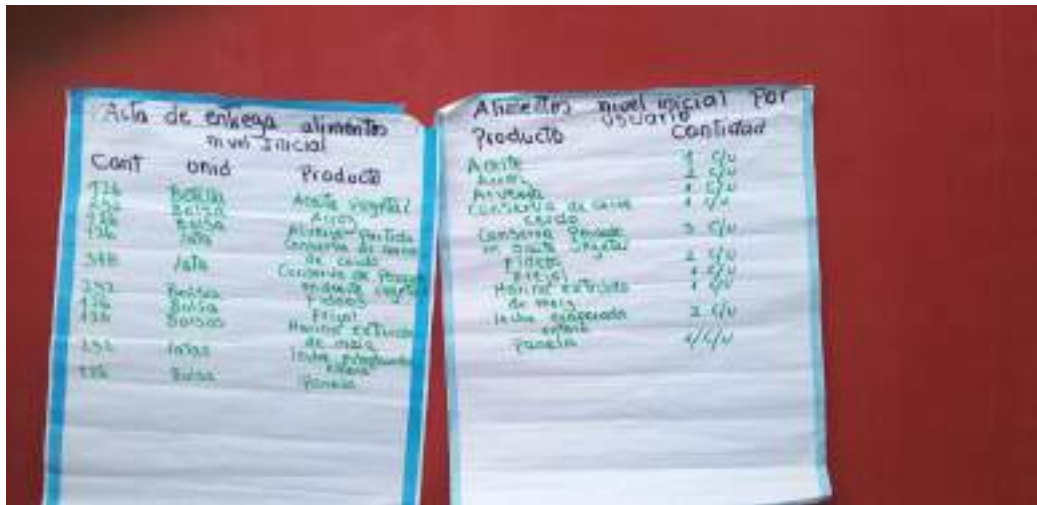 Acta de entrega alimentos
nivel Inicial
Cant unid Producto
126 Botella Aceite vegetal
252 Bolsa Arroz
126 Bolsa Alverja Partida
126 lata Conserva de carne
de cerdo
378 lata Conserva de Pescado
en aceite vegetal
252 Bolsa Fideos
126 Bolsa Frijol
126 Bolsas Harina extruida
de maiz
252 latas leche evaporada
entera
126 Bolsa Panela
Alimentos nivel inicial Por
usuario
Producto Cantidad
Aceite 1 c/u
Arroz 2 c/u
Arverja 1 c/u
Conserva de carne 1 c/u
cerdo
Conserva Pescado 3 c/u
en aceite vegetal
Fideos 2 c/u
Frijol 1 c/u
Harina extruida 1 c/u
de maiz
leche evaporada 2 c/u
entera
Panela 1 c/u